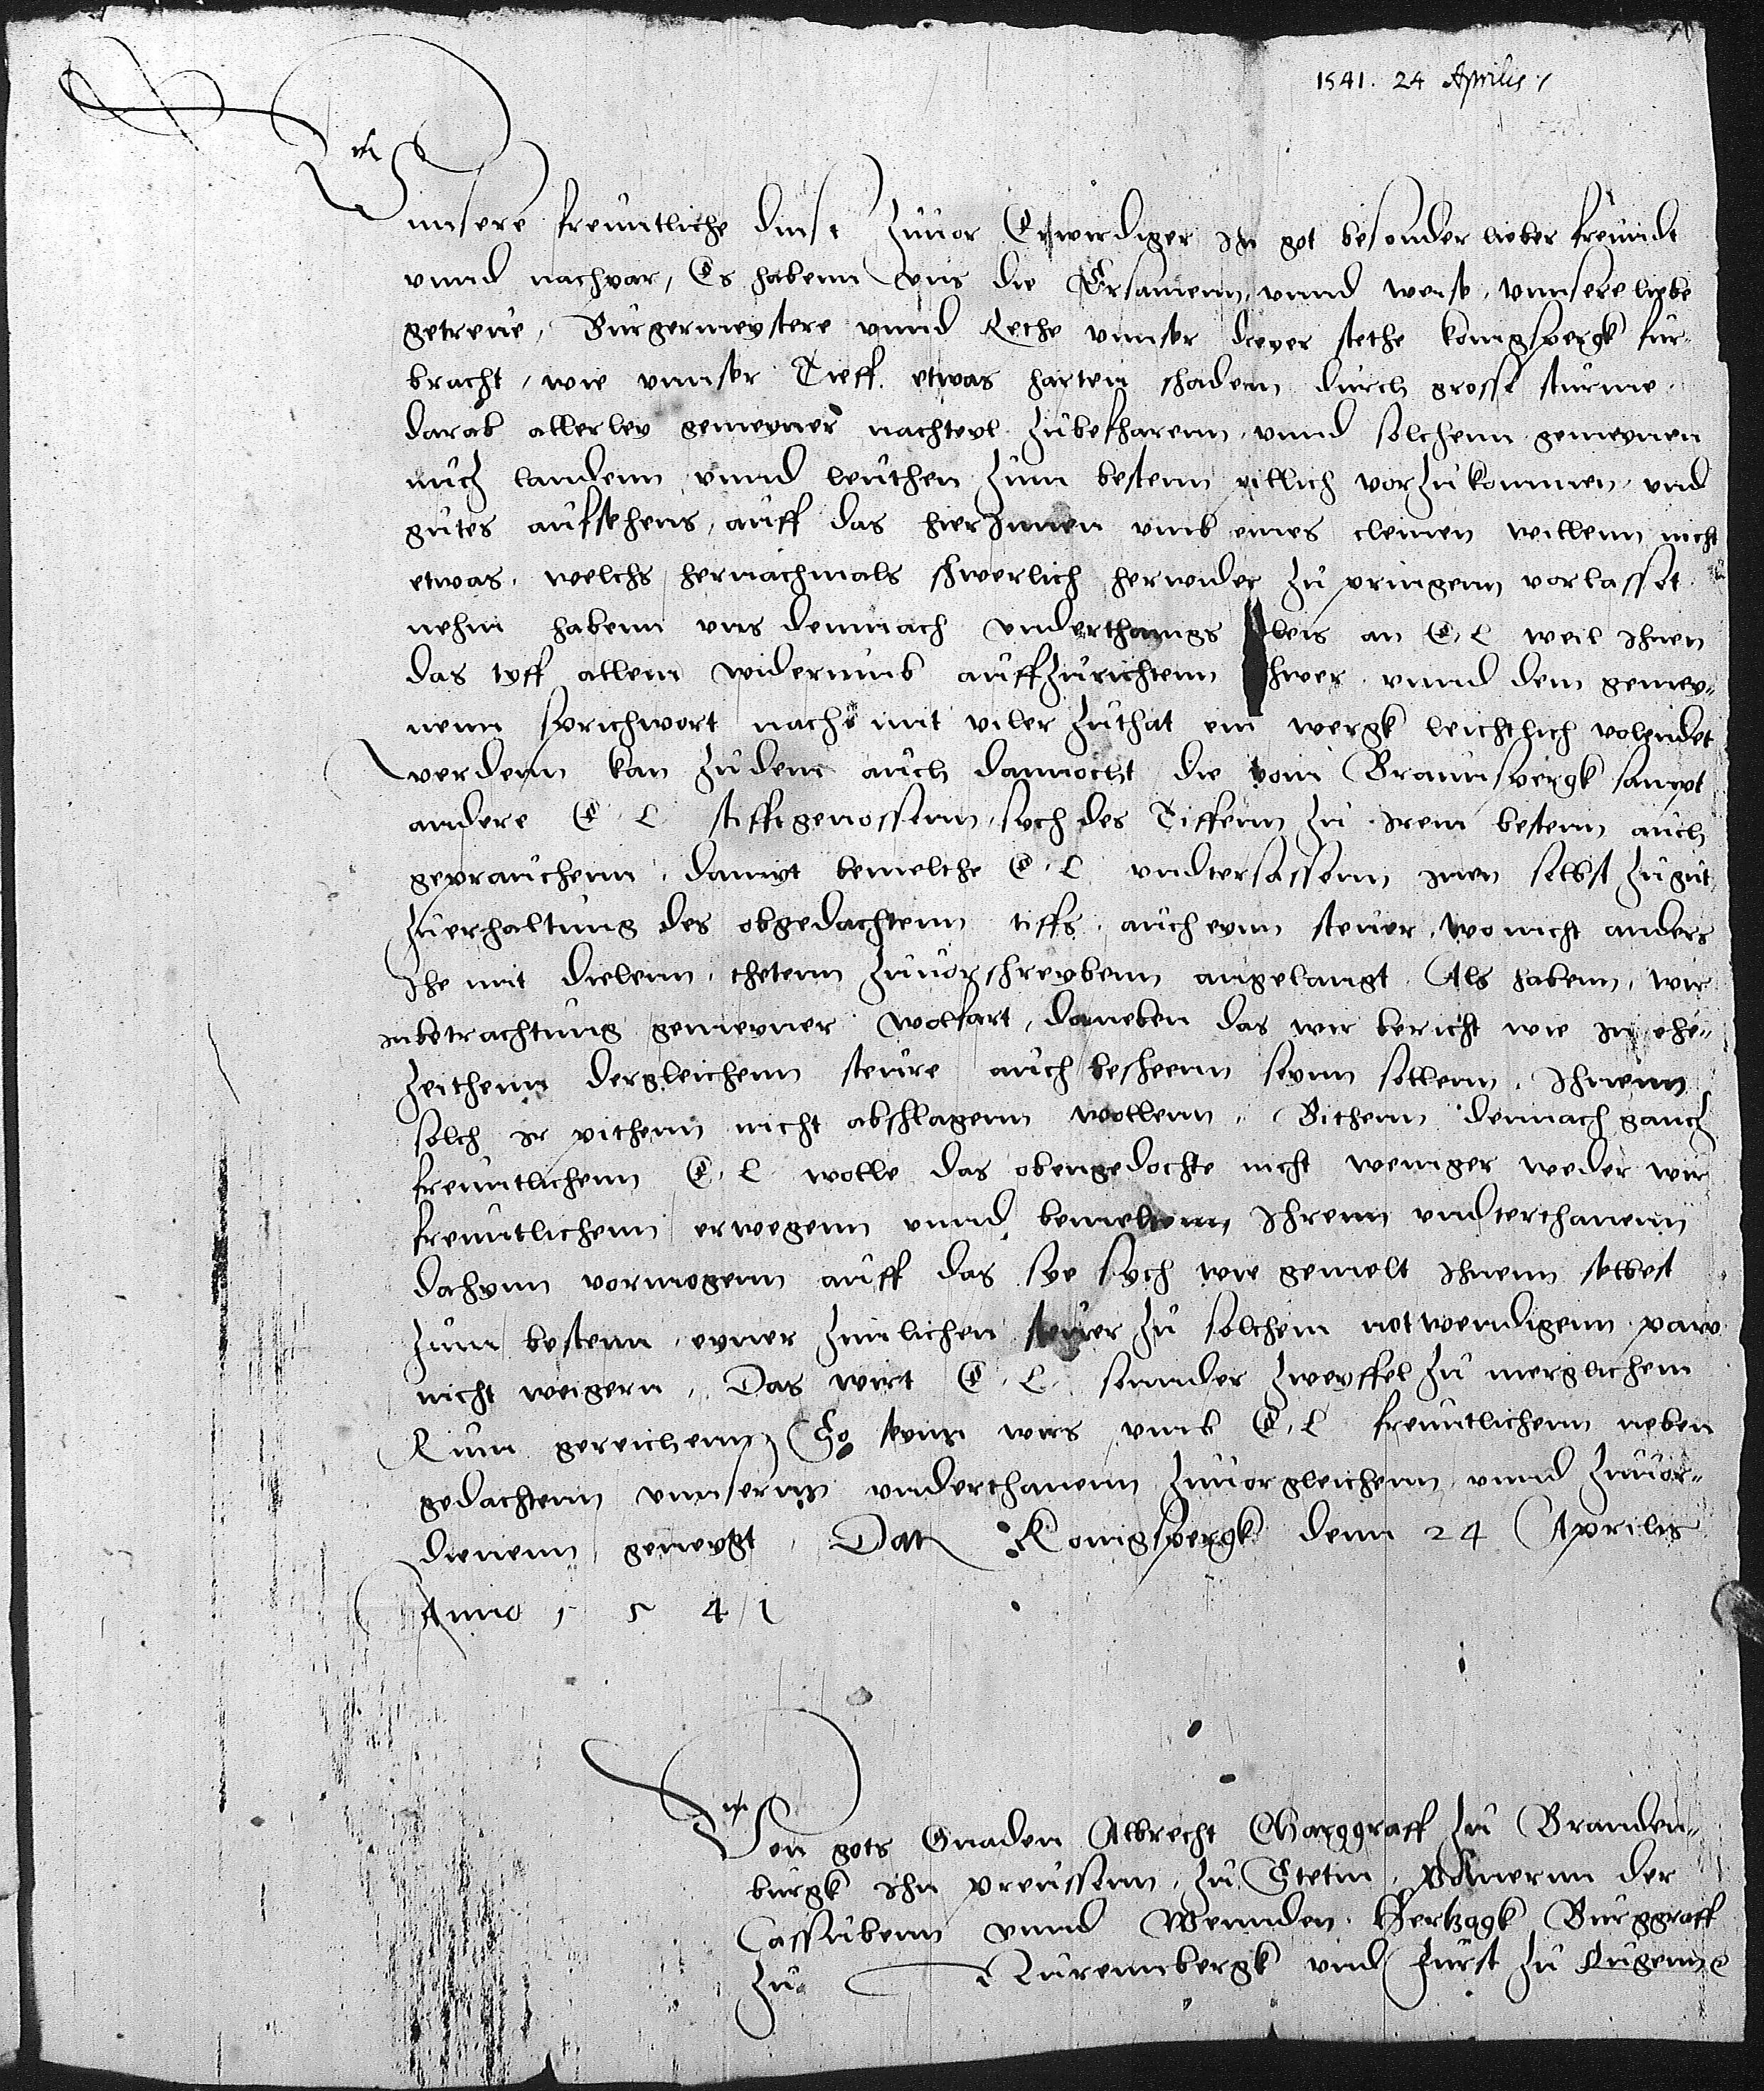 1541. 24 Aprilis
Vnnsere freuntliche dinst zuuor Erwirdiger in got besonder lieber freundt
vnnd nachpar, Es habenn vns die Ersamenn vnnd weise, vnnsere liebe
getreue, Burgermeystere vnnd Rethe vnnser dreyer stethe konigspergk fur-
bracht, wie vnnser Tieff etwas harten schadenn durch grosse sturme
darab allerley gemeyner nachteyl zubefharenn, vnnd solchenn gemeynen
nucz landenn vnnd leuthen zum bestenn pillich vorzukommen vnd
gutes aufsehens, auff das hierInnen vmb eines cleinen willenn nicht
etwas, welchs hernachmals schwerlich herwider zu pringenn vorlasset
nehm habenn vns demnach vnderthanigs vleis an E. L. weil Ihnen
das tyff allein widerumb auffzurichtenn schwer vnnd dem gemey-
nenn sprichwort nach mit viler zuthat ein wergk leichtlich volendet
werdenn kan zudem auch dannocht die vom Braunspergk sampt
andere E L stifftgenossenn sych des Tiffenn zu irem bestenn auch
gepraucheun, damyt bemelthe E. L. vndtersassenn inen selbst zugut
zuerhaltung des obgedachtenn tiffs, auch eynn steuer, wo nicht anders
Ihe mit dielenn, thetenn zuuorschreybenn angelangt. Als habenn, wir
inbetrachtung gemeyner wolfart, daneben das wir bericht wie in ehe-
zeithenn dergleichenn steure auch bescheenn seynn sollenn, Ihnenn
solch ir pithenn nicht abschlagenn wollenn. Bithenn demnach gancz
freuntlichenn E. L. wolle das obengedachte nicht weniger weder wir
freuntlichenn erwegenn vnnd bemeltenn Ihrenn vndterthanenn
dahynn vormogenn auff das sye sych wie gemelt Ihnenn selbest
zum bestenn, eyner zimlichen steuer zu solchem notwendigenn paw
nicht weigern, Das wirt E. L. sunnder zweyffel zu merglichem
Rum gereichenn, So seynn wirs vmb E. L. freuntlichenn neben
gedachtenn vnnsernn vnderthanenn zuuorgleichenn vnnd zuuor-
dienenn geneygt, Dat Konigspergk denn 24 Aprilis
Anno 1 5 4 1
Von gots Gnaden Albrecht Marggraff zu Branden-
burgk Ihn preussenn, zu Stetin, pomernn der
Cassubenn vnnd Wennden Hertzogk Burggraff
zu Nurennbergk vnd Furst zu Rugenn